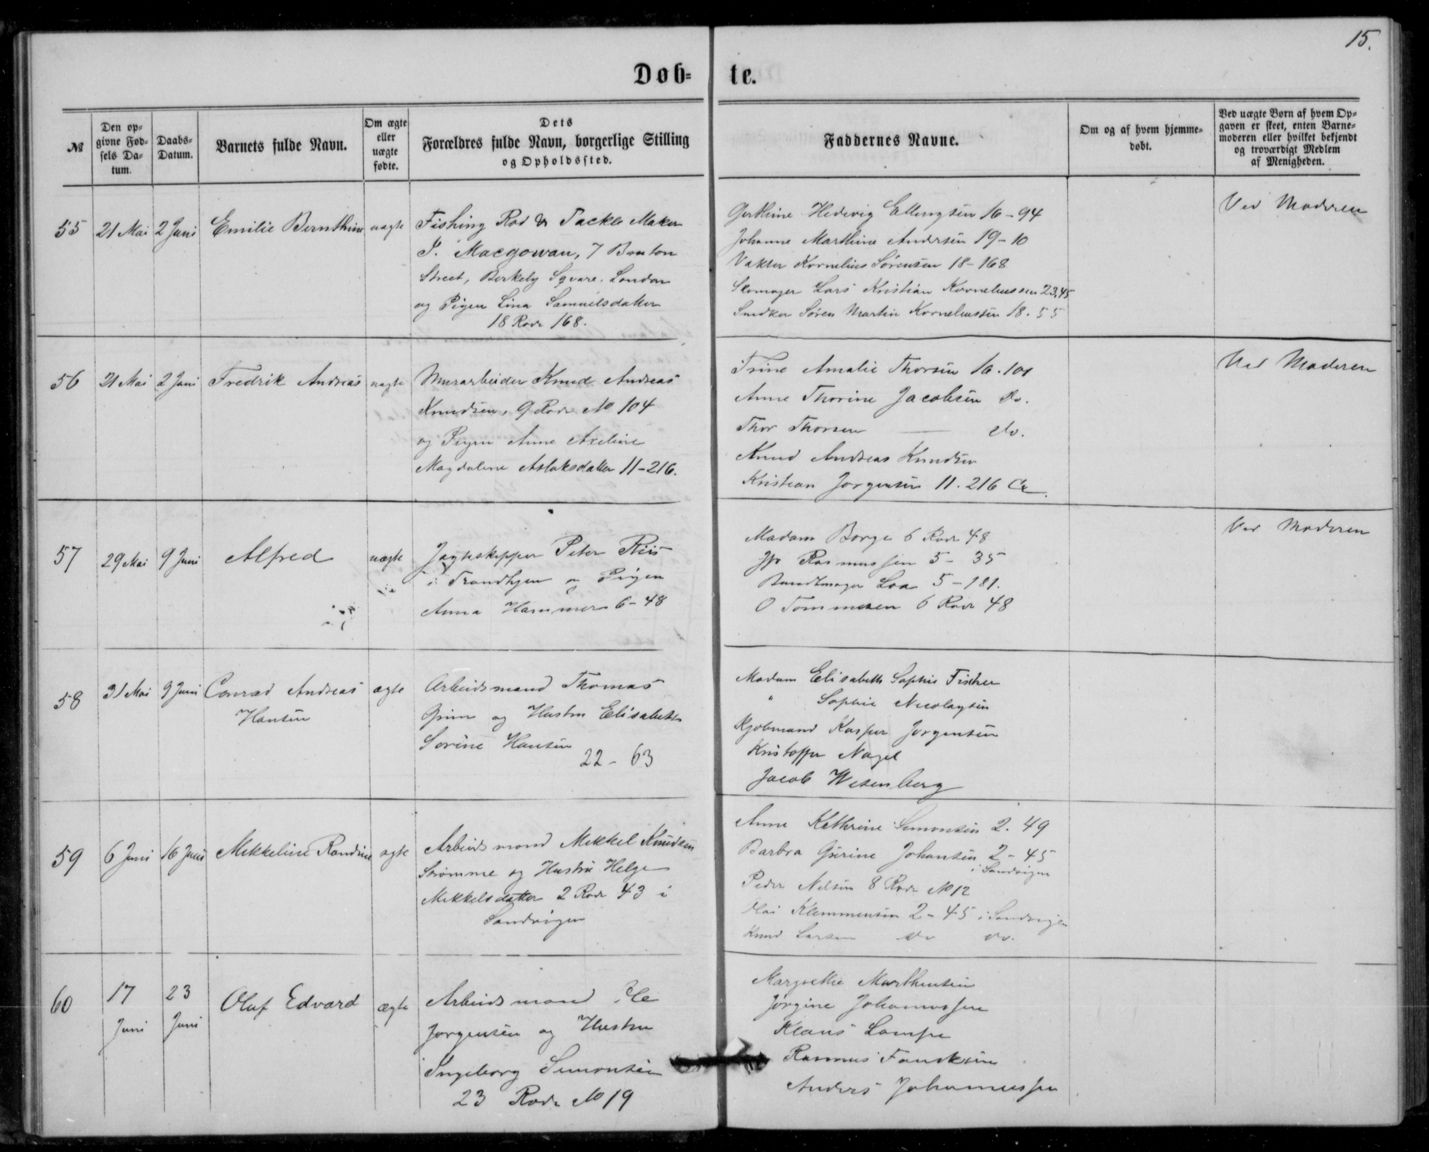 15.
Døb- te.
№
Den op-
givne Fød-
sels Da-
tum.
Daabs-
Datum.
Barnets fulde Navn.
Om ægte
eller
uægte
fødte.
Dets
Forældres fulde Navn, borgerlige Stilling
og Opholdssted.
Faddernes Navne.
Om og af hvem hjemme-
døbt.
Ved uægte Børn af hvem Op-
gaven er skeet, enten Barne-
moderen eller hvilket bekjendt
og troværdigt Medlem
af Menigheden.
55 21 Mai 2 Juni Emilie Bernthine uægte
Fishing Rod & Tackle Maker
P. Macgowan, 7 Bruton
Street, Berkely Sqvare. London
og Pigen Lina Samuelsdatter
18 Rode 168.
Gerthine Hedevig Ellingsen 16-94
Johanne Marthine Andersen 19-10
Vakter Kornelius Sørensen 18-168
Skomager Lars Kristian Korneliussen 23,45
Snedker Søren Martin Korneliussen 18-55
Ved Moderen
56 21 Mai 2 Juni Fredrik Andreas uægte
Murarbeider Knud Andreas
Knudsen, 9 Rode № 104
og Pigen Anne Axeline
Magdalene Aslaksdatter 11-216.
Trine Amalie Thorsen 16.101
Anne Thorine Jacobsen do.
Thor Thorsen do.
Knud Andreas Knudsen
Kristian Jørgensen 11.216
Ved Moderen
57 29 Mai 9 Juni Alfred uægte
Jagtskipper Peter Riis
i Trondhjem og Pigen
Anna Hammer 6-48
Madam Borge 6 Rode 48
Rasmussen 5- 35
Bundtmager Loa 5-181.
O Tommesen 6 Rode 48
Ved Moderen
58 31 Mai 9 Juni Conrad Andreas ægte
Hansen
Arbeidsmand Thomas
Grim og Hustru Elisabeth
Sorine Hansen
22- 63
Madam Elisabeth Sophie Fischer
" Sophie Nicolaysen
Kjøbmand Kasper Jørgensen
Kristoffer Nagel
Jacob Wesenberg
59 6 Juni 16 Juni Mikkeline Randine ægte
Arbeidsmand Mikkel Knudsen
Strømme og Hustru Helge
Mikkelsdatter 2 Rode 43 i
Sandvigen
Anne Kathrine Simonsen 2. 49
Barbra Gurine Johansen 2-45
i Sandvigen
Peder Nilsen 8 Rode № 12
Klemmensen 2-45 i Sandvigen
Knud Larsen do do.
60 17 Juni 23 Juni Oluf Edvard ægte
Arbeidsmand Ole
Jørgensen og Hustru
Ingeborg Simonsen
23 Rode № 19
Margrethe Marthinsen
Jørgine Johannessen
Klaus Lampe
Rasmus
Anders Johannessen